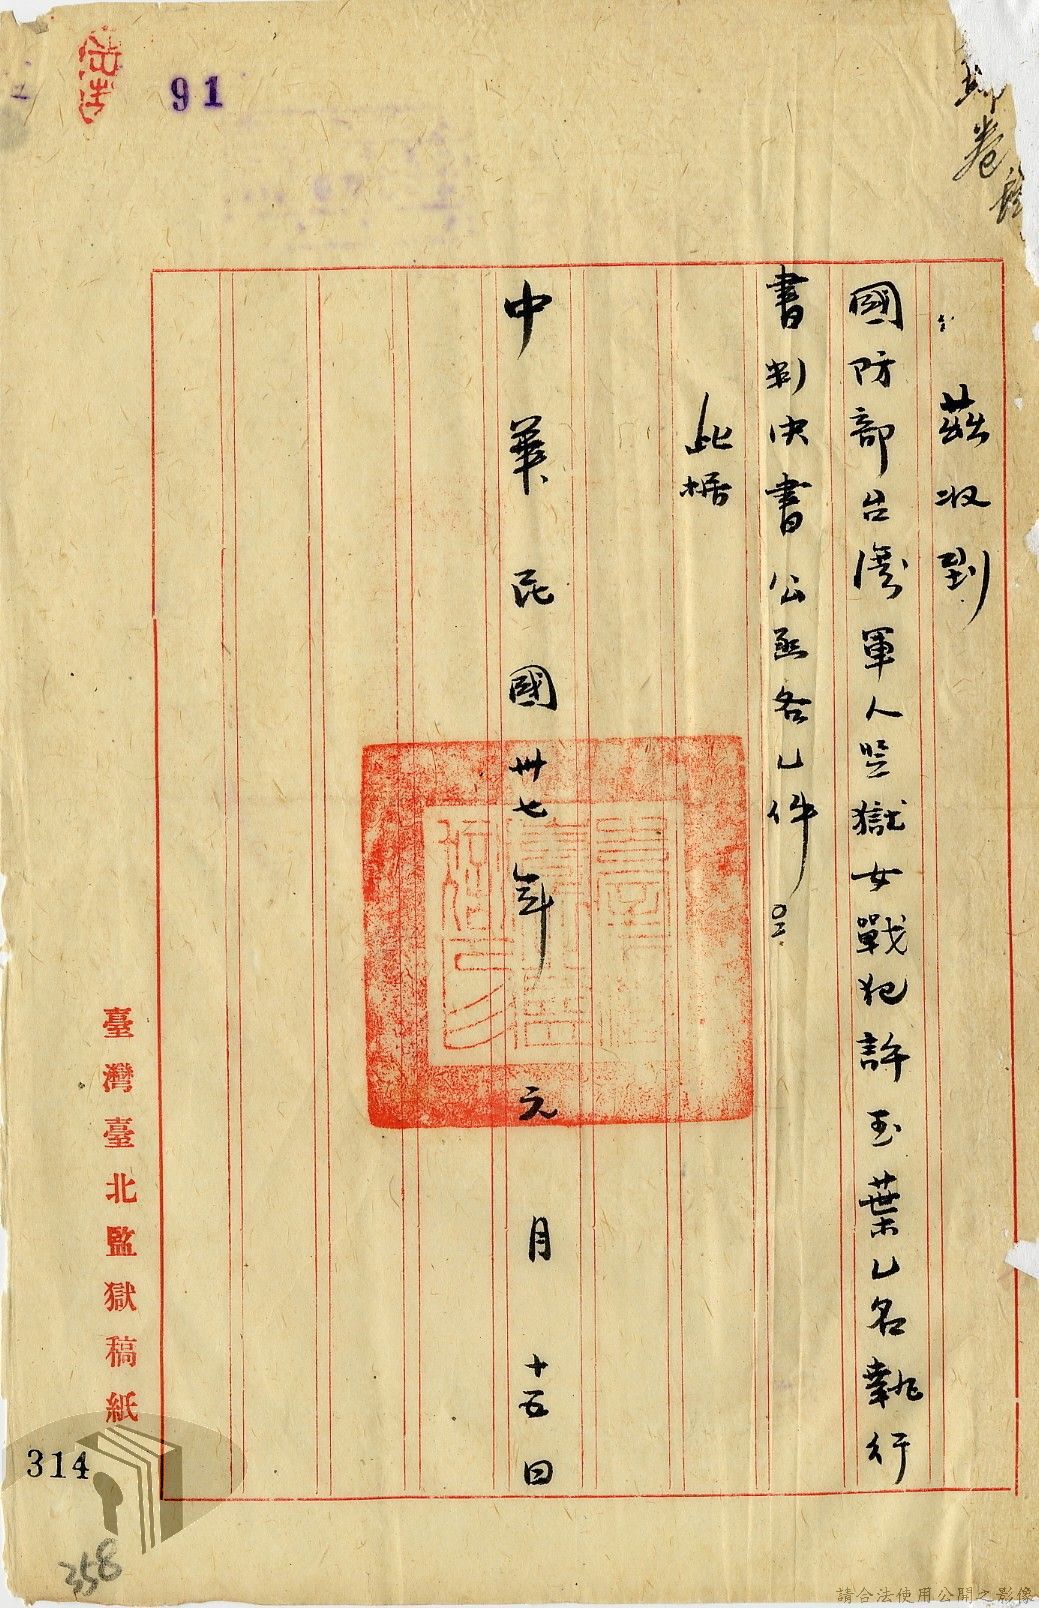 91
卷
茲收到
國防部台灣軍人监獄女戰犯許玉葉乙名執行
書判決書公函各乙件
此據
中華民國卅七年元月十五日
臺灣臺北監獄稿紙
314
358
請合法使用公開之影像